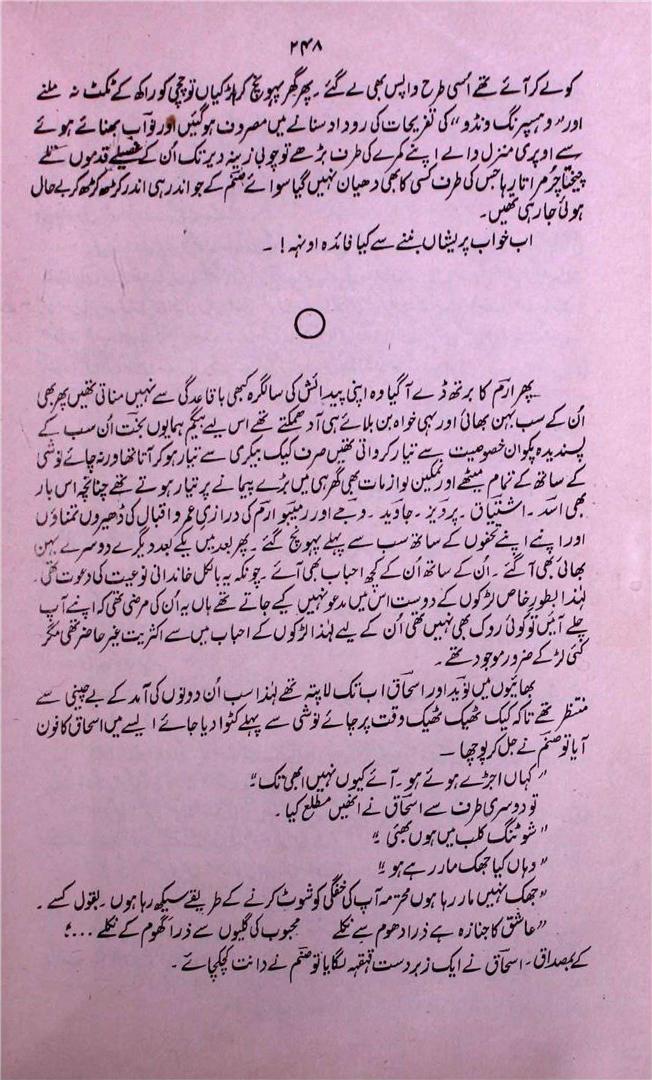 ۲۴۸
کو لے کر آئے تھے اُسی طرح واپس بھی لے گئے ۔ پھر گھر پہونچ کر لڑکیاں تو چچی کو راکھ کے ٹکٹ نہ ملنے
اور ”وہسپرنگ ونڈو“ کی تفریحات کی روداد سنانے میں مصروف ہوگئیں اور نواب بھنائے ہوئے
سے اوپری منزل والے اپنے کمرے کی طرف بڑھے تو چوبی زینہ دیر تک اُن کے غصیلے قدموں تلے
چیختا چرمراتا رہا جس کی طرف کسی کا بھی دھیان نہیں گیا سوائے صنم کے جو اندر ہی اندر کڑھ کڑھ کر بے حال
ہوئی جا رہی تھیں۔
اب خواب پریشاں بننے سے کیا فائدہ اونہہ ! ۔
پھر ارم کا برتھ ڈے آگیا وہ اپنی پیدائش کی سالگرہ کبھی باقاعدگی سے نہیں مناتی تھیں پھر بھی
اُن کے سب بہن بھائی اور بہی خواہ بن بلائے ہی آدھمکتے تھے اس لیے بیگم ہمایوں بخت اُن سب کے
پسندیدہ پکوان خصوصیت سے تیار کرواتی تھیں صرف کیک بیکری سے تیار ہو کر آتا تھا ورنہ چائے نوشی
کے ساتھ کے تمام میٹھے اور نمکین لوازمات بھی گھر ہی میں بڑے پیمانے پر تیار ہوتے تھے چنانچہ اس بار
بھی اسد ۔ اشتیاق ۔ پرویز ۔ جاوید ۔ وجے اور رمیبو ارم کی درازیِ عمر و اقبال کی ڈھیروں تمناؤں
اور اپنے اپنے تحفوں کے ساتھ سب سے پہلے پہونچ گئے ۔ پھر بعد میں یکے بعد دیگرے دوسرے بہن
بھائی بھی آگئے ۔ ان کے ساتھ اُن کے کچھ احباب بھی آئے ۔ چونکہ یہ بالکل خاندانی نوعیت کی دعوت تھی
لہٰذا بطورِ خاص لڑکوں کے دوست اس میں مدعو نہیں کیے جاتے تھے ہاں یہ اُن کی مرضی تھی کہ اپنے آپ
چلے آئیں تو کوئی روک بھی نہیں تھی اُن کے لیے لہٰذا لڑکوں کے احباب میں سے اکثریت غیر حاضر تھی مگر
کئی لڑکے ضرور موجود تھے ۔
بھائیوں میں نوید اور اسحاق اب تک لاپتہ تھے لہٰذا سب اُن دونوں کی آمد کے بے چینی سے
منتظر تھے تاکہ کیک ٹھیک ٹھیک وقت پر چائے نوشی سے پہلے کٹوا دیا جائے ایسے میں اسحاق کا فون
آیا تو صنم نے جل کر پوچھا ۔
”کہاں اجڑے ہوئے ہو ۔ آئے کیوں نہیں ابھی تک“
تو دوسری طرف سے اسحاق نے انھیں مطلع کیا ۔
”شوٹنگ کلب میں ہوں بھئی“
”وہاں کیا جھک مار رہے ہو“
”جھک نہیں مار رہا ہوں محترمہ آپ کی خفگی کو شوٹ کرنے کے طریقے سیکھ رہا ہوں ۔ بقول کسے ۔
”عاشق کا جنازہ ہے ذرا دھوم سے نکلے   محبوب کی گلیوں سے ذرا گھوم کے نکلے ...“
کے بمصداق ۔ اسحاق نے ایک زبردست قہقہہ لگایا تو صنم نے دانت کچکچائے ۔